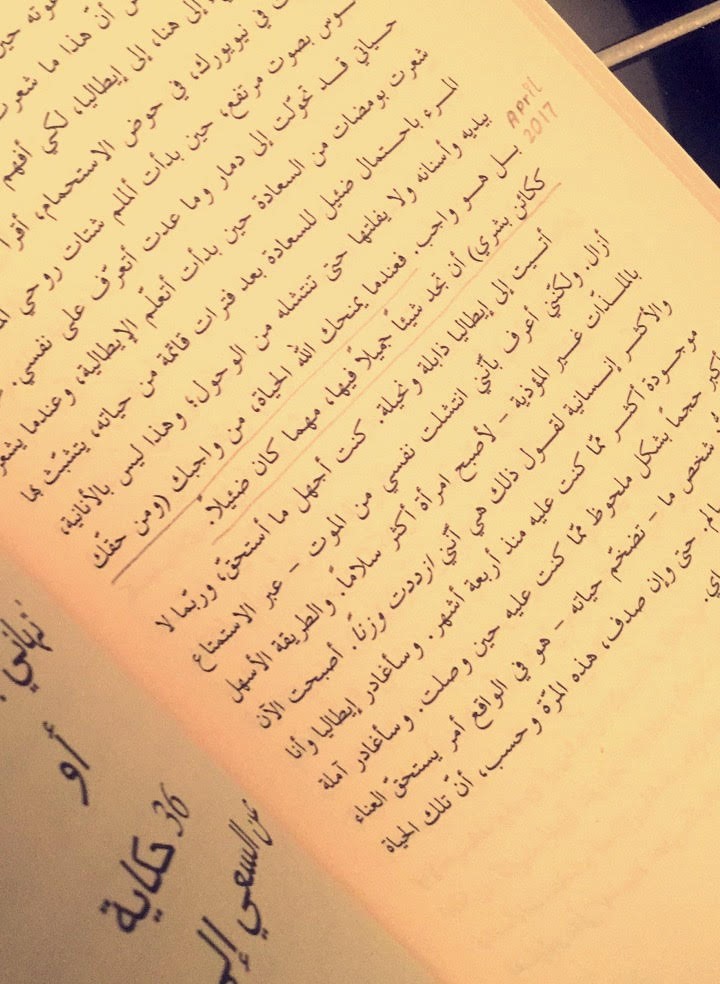 حين
أنّ هذا ما شعرت
إلى هنا، إلى إيطاليا، لكي أفهم
في نيويورك، في حوض الاستحمام، أقرأ
بصوت مرتفع، حين بدأت ألملم شتات روحي
حياتي قد تحوّلت إلى دمار وما عدت أتعرّف على نفسي.
شعرت بومضات من السعادة حين بدأت أتعلّم الإيطالية، وعندما يشعر
المرء باحتمال ضئيل للسعادة بعد فترات قائمة من حياته، يتشبّث بها
بيديه وأسنانه ولا يفلتها حتى تنتشله من الوحول؛ وهذا ليس بالأنانية،
بل هو واجب. فعندما يمنحك الله الحياة، من واجبك (ومن حقّك
ككائن بشري) أن تجد شيئًا جميلاً فيها، مهما كان ضئيلاً.
April
2017
أتيت إلى إيطاليا ذابلة ونحيلة. كنت أجهل ما أستحقّ، وربّما لا
أزال. ولكنّني أعرف بأنّني انتشلت نفسي من الموت - عبر الاستمتاع
بالملذّات غير المؤذية - لأصبح امرأة أكثر سلامًا. والطريقة الأسهل
والأكثر إنسانية لقول ذلك هي أنّني ازددت وزنًا. أصبحت الآن
موجودة أكثر ممّا كنت عليه منذ أربعة أشهر. وسأغادر إيطاليا وأنا
أكبر حجمًا بشكل ملحوظ ممّا كنت عليه حين وصلت. وسأغادر آملة
شخص ما - تضخّم حياته - هو في الواقع أمر يستحقّ العناء
حتى وإن صدف، هذه المرّة وحسب، أنّ تلك الحياة
أو
36 حكاية
عن السعي